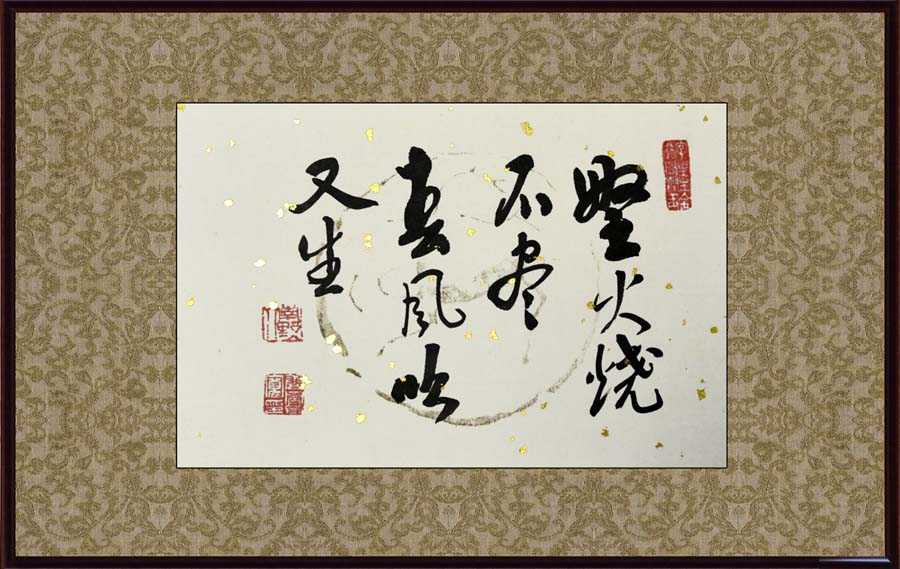 野火烧
不尽
春风吹
又生